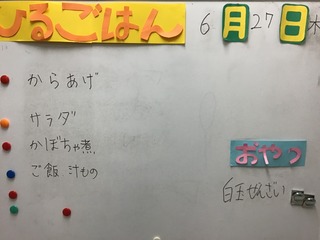 ひるごはん
6月27日木
からあげ
サラダ
かぼちゃ煮
ご飯 汁もの
おやつ
白玉ぜんざい